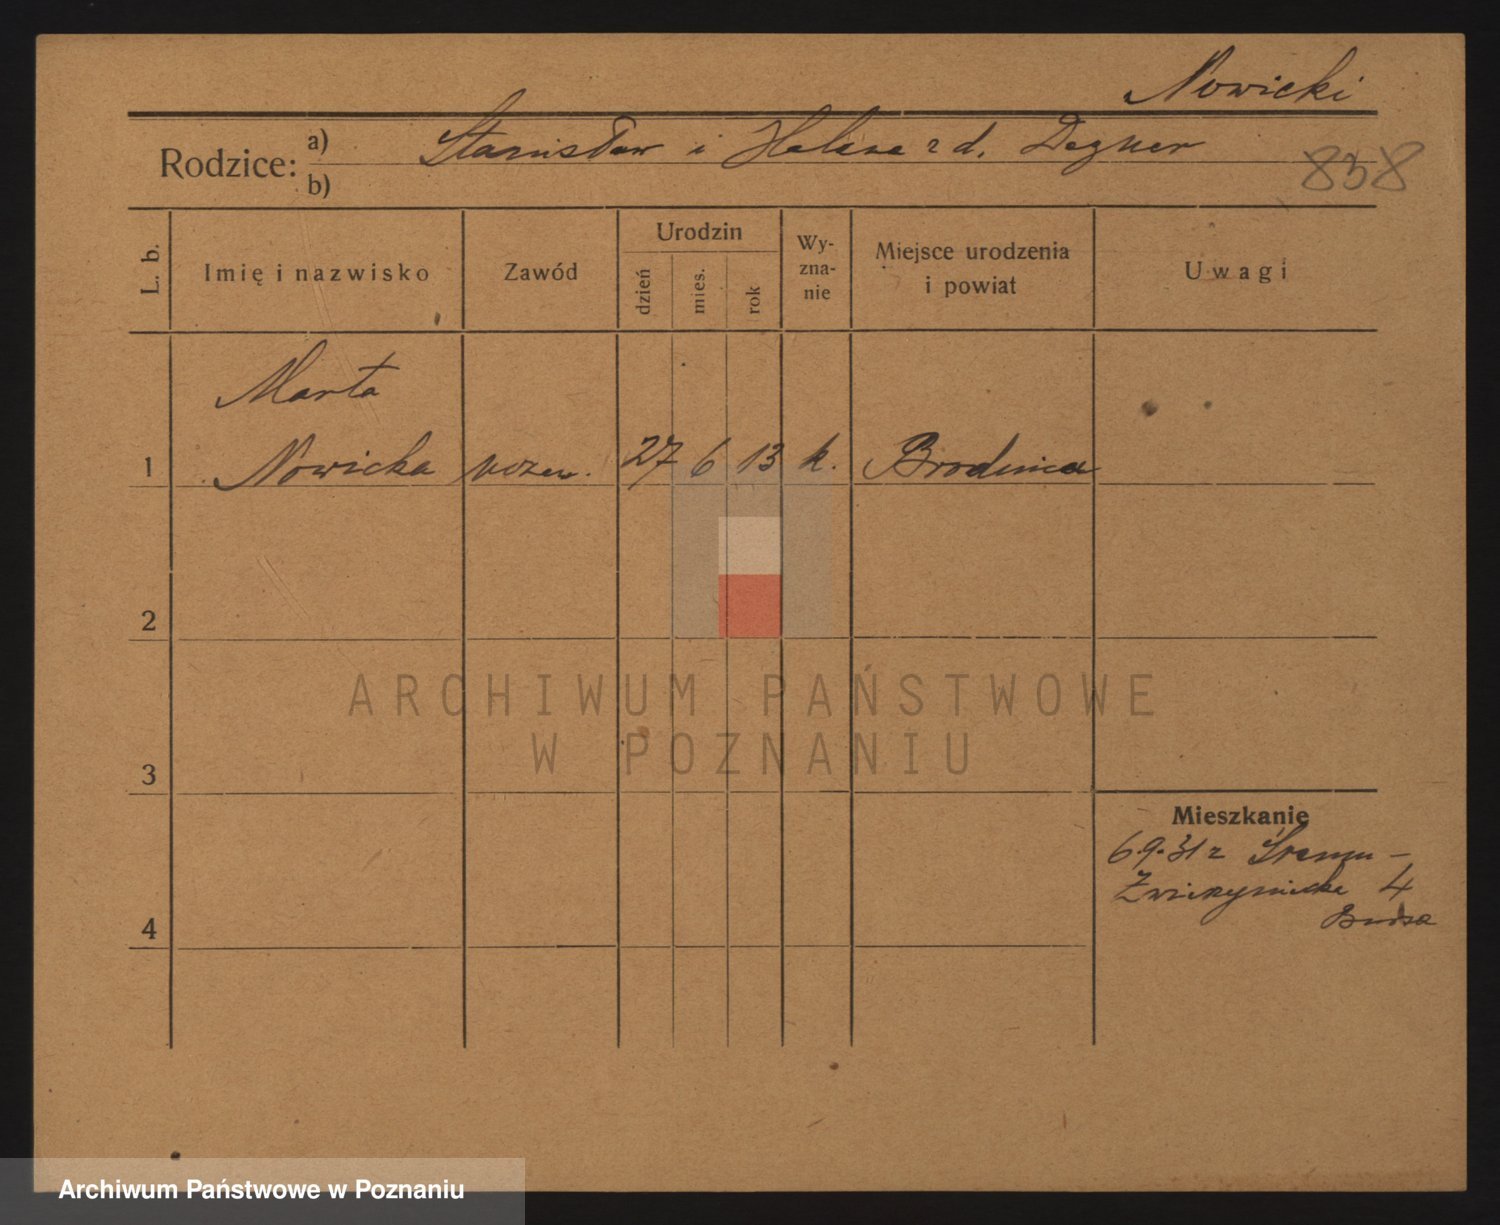 Nowicki
Rodzice: a) Stanisław i Helena z d. Degner
b)
838
L. b.
Imię i nazwisko
Zawód
Urodzin
dzień
mies.
rok
Wy-
zna-
nie
Miejsce urodzenia
i powiat
Uwagi
Marta
1 Nowicka 27 6 13 k. Brodnica
2
3
4
Mieszkanie
6.9.31 z Śremu –
Zwierzyniecka 4
ARCHIWUM PAŃSTWOWE
W POZNANIU
Archiwum Państwowe w Poznaniu